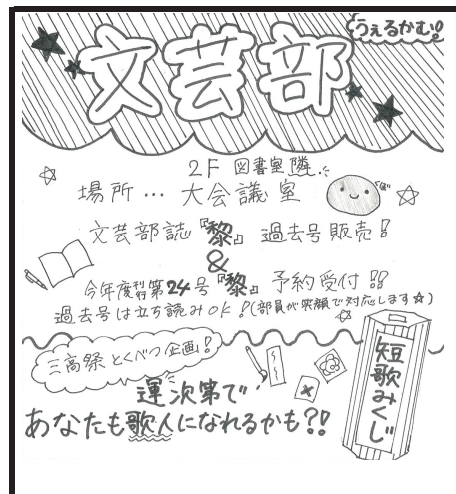 うぇるかむ!!
文芸部
2F 図書室隣
場所…大会議室
文芸部誌『黎』過去号販売!
&
今年度刊行第24号『黎』予約受付!!
過去号は立ち読みOK!(部員が笑顔で対応します☆)
三高祭とくべつ企画!
運次第で
あなたも歌人になれるかも?!
短歌みくじ